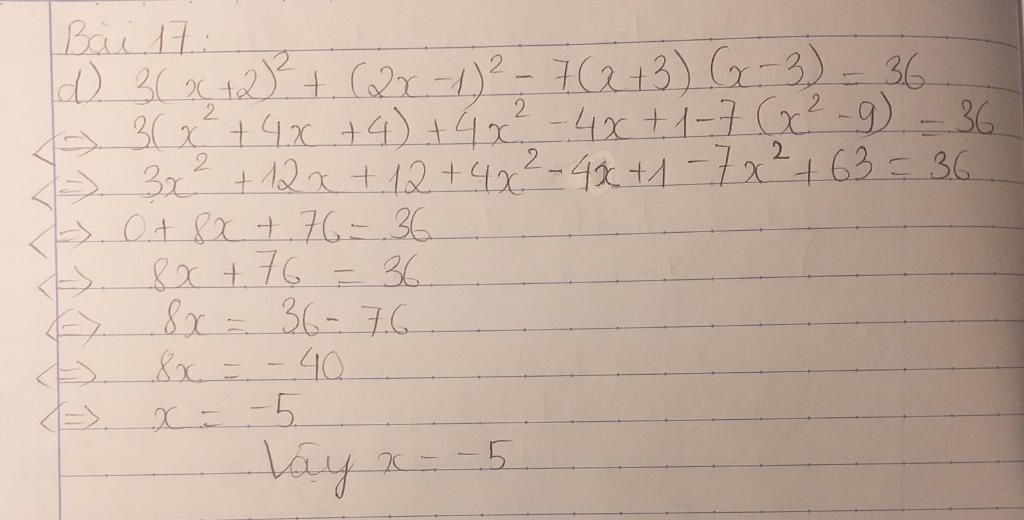 Bài 17:
d) 3(x+2)² + (2x-1)² - 7(x+3)(x-3) = 36
<=> 3(x² + 4x + 4) + 4x² - 4x + 1 - 7(x² - 9) = 36
<=> 3x² + 12x + 12 + 4x² - 4x + 1 - 7x² + 63 = 36
<=> 0 + 8x + 76 = 36
<=> 8x + 76 = 36
<=> 8x = 36 - 76
<=> 8x = -40
<=> x = -5
Vậy x = -5